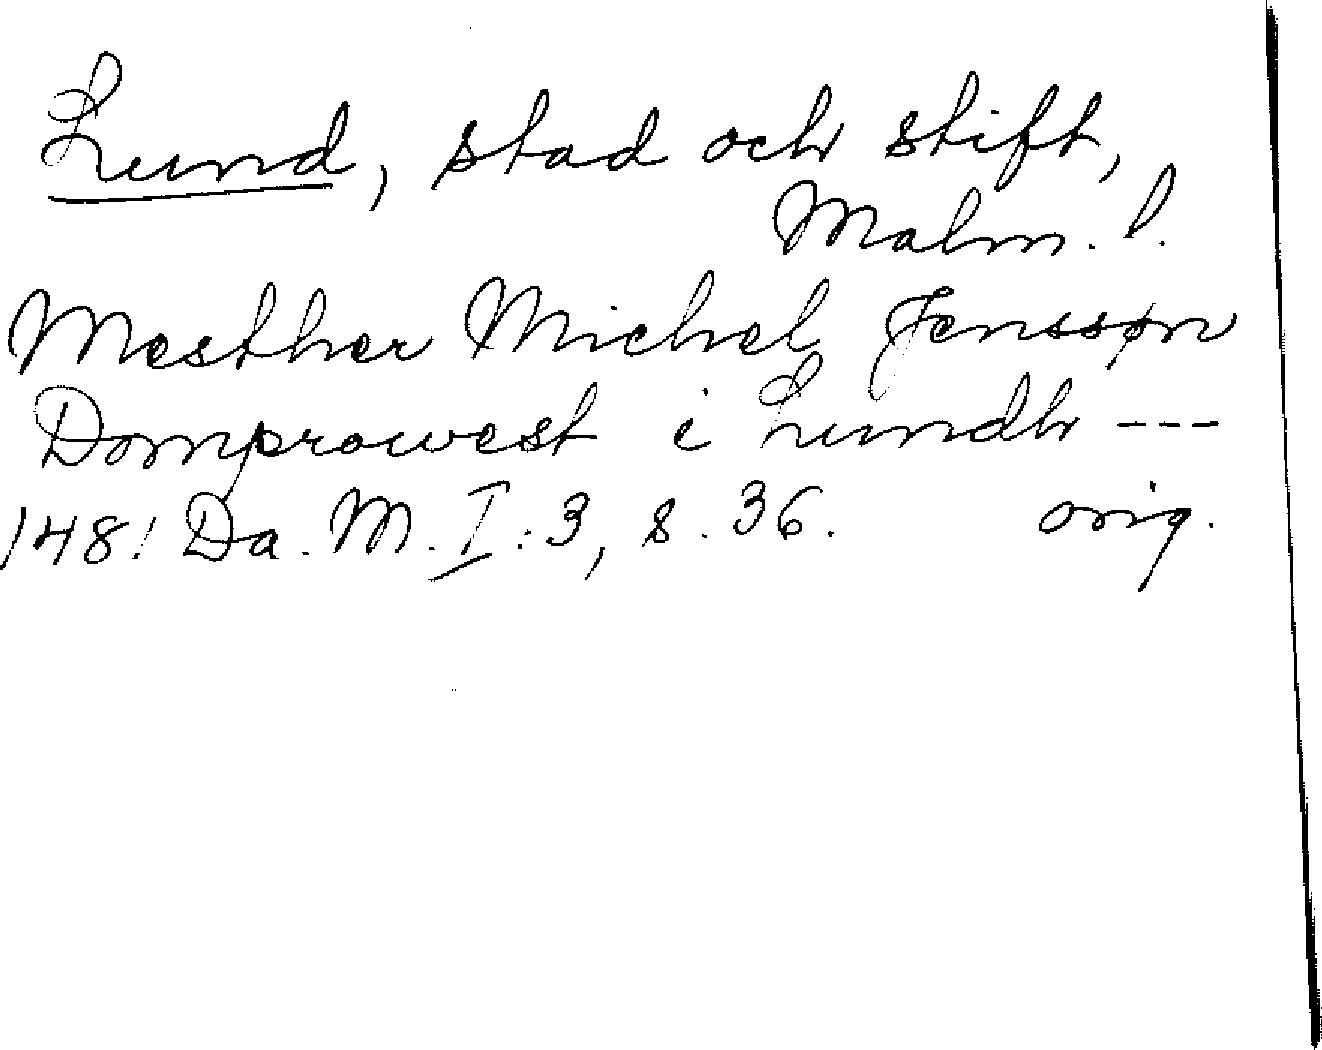 Lund, stad och stift,
Malm. l.
Mesther Michel Jenssøn
Domprowest i Lundh ---
1481 Da. M. I:3, s. 36. orig.